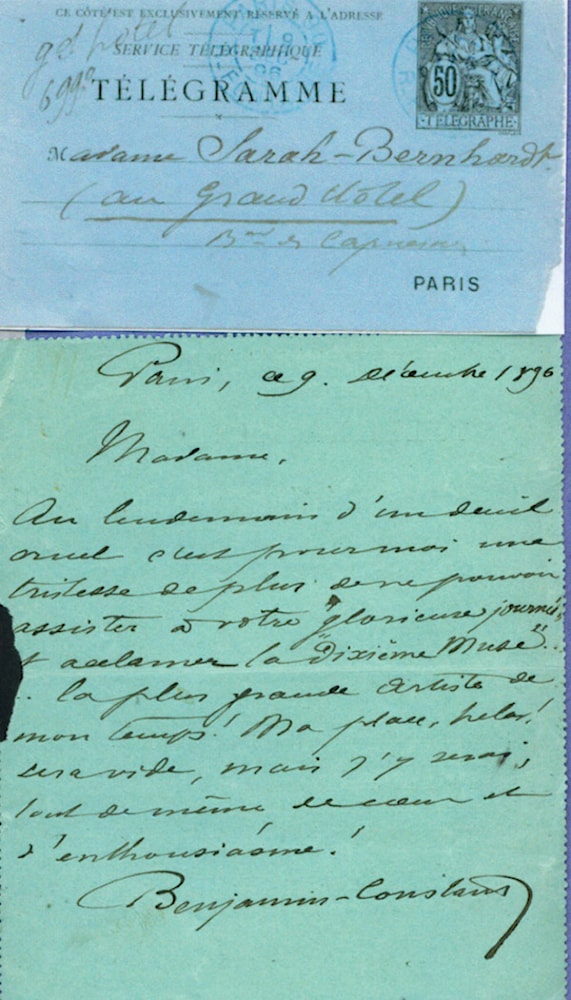 CE CÔTÉ EST EXCLUSIVEMENT RÉSERVÉ A L'ADRESSE
gd hotel
SERVICE TÉLÉGRAPHIQUE
TÉLÉGRAMME
50
TÉLÉGRAPHE
Madame Sarah-Bernhardt
(au Grand Hotel)
Bd des Capucines
PARIS
Paris, ce 9. décembre 1896
Madame,
Au lendemain d'un deuil
cruel c'est pour moi une
tristesse de plus de ne pouvoir
assister à votre "glorieuse journée"
et acclamer la "Dixième Muse"..
.. la plus grande artiste de
mon temps! Ma place, hélas!
sera vide, mais j'y serai,
tout de même de cœur et
d'enthousiasme!
Benjamin-Constant